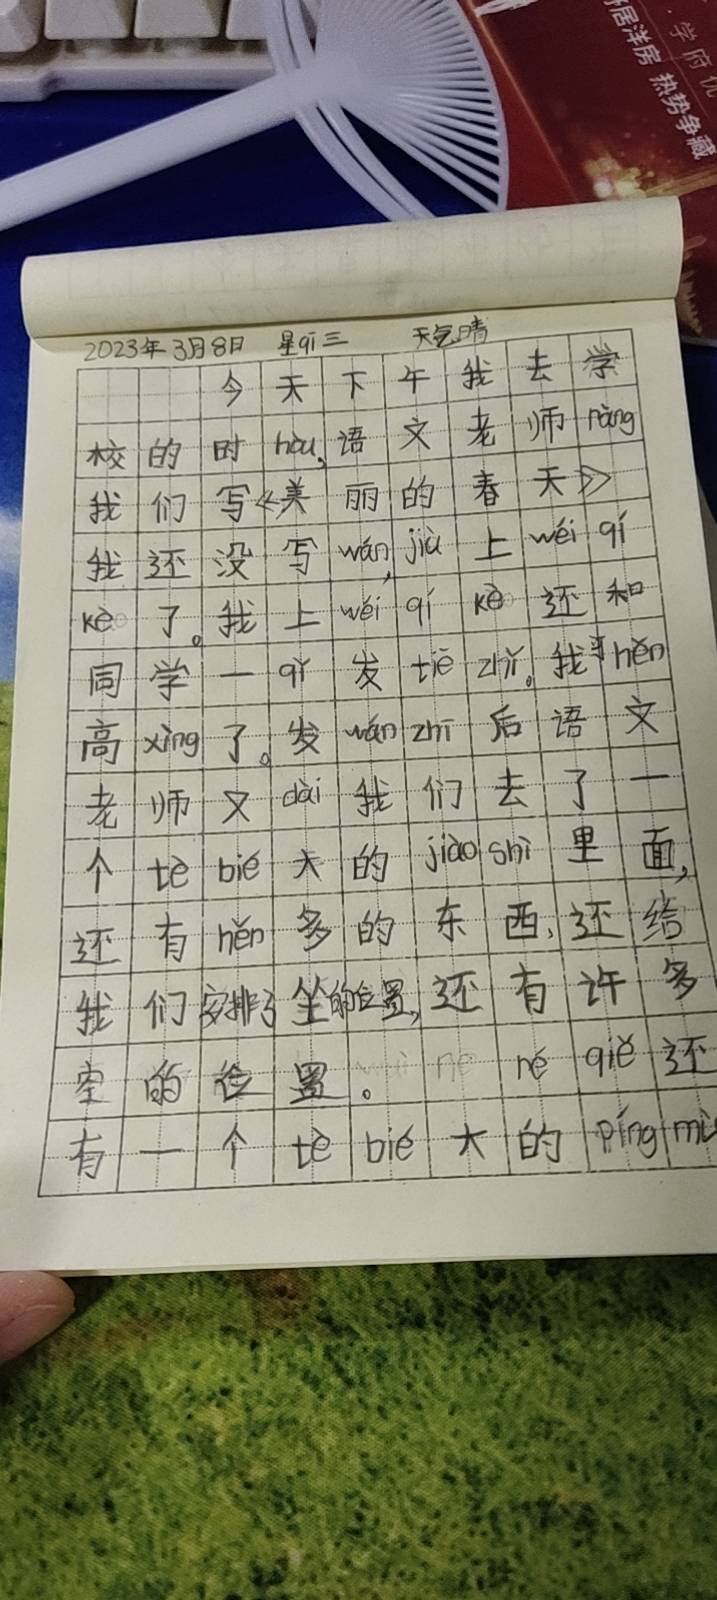 学府优
舒居洋房 热势争藏
2023年3月8日 星qī三 天气晴
今天下午我去学
校的时hòu,语文老师ràng
我们写《美丽的春天》
我还没写wán,jiù上wéi qí
kè了。我上wéi qí kè还和
同学一qǐ发tiē zhǐ。我hěn
高xìng了。发wán zhǐ后语文
老师又dài我们去了一
个tè bié大的jiào shì里面,
还有hěn多的东西,还给
我们安排了坐的位置,还有许多
空的位置。né qiě还
有一个tè bié大的píng mù